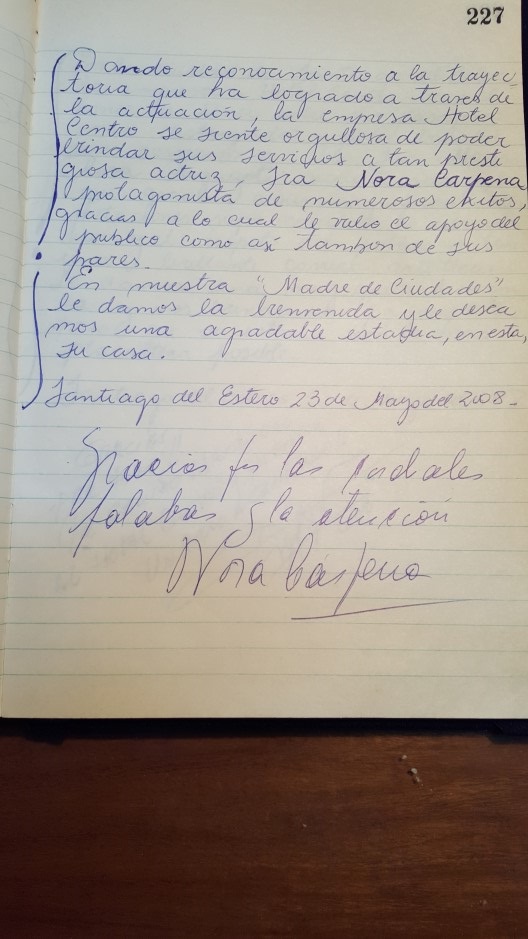 227
Dando reconocimiento a la trayec-
toria que ha logrado a traves de
la actuación, la empresa Hotel
Centro se siente orgullosa de poder
brindar sus servicios a tan presti
giosa actriz, Sra Nora Carpena,
protagonista de numerosos exitos,
gracias a lo cual le valio el apoyo del
publico como así tambien de sus
pares.
En nuestra "Madre de Ciudades"
le damos la bienvenida y le desea
mos una agradable estadia, en esta,
su casa.
Santiago del Estero 23 de Mayo del 2008.-
Gracias por las cordiales
palabras y la atención
Nora Cárpena